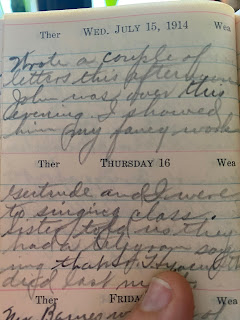 Ther WED. JULY 15, 1914 Wea
Wrote a couple of
letters this afternoon
John was over this
evening. I showed
him my fancy work
Ther THURSDAY 16 Wea
Gertrude and I were
to singing class.
Sister told us they
had a telegram say
ing that
died last
Ther FRIDA Wea
Mrs Barnes